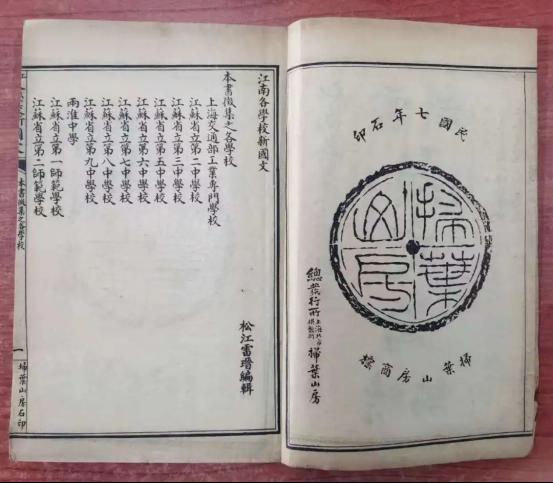 民國七年石印
掃葉山房
掃葉山房商標
總發行所上海北市棋盤街掃葉山房
江南各學校新國文
本書徵集之各學校
上海交通部工業專門學校
江蘇省立第二中學校
江蘇省立第三中學校
江蘇省立第五中學校
江蘇省立第六中學校
江蘇省立第七中學校
江蘇省立第八中學校
江蘇省立第九中學校
兩淮中學
江蘇省立第一師範學校
江蘇省立第二師範學校
松江雷瑨編輯
本書徵集之各學校
一
掃葉山房石印